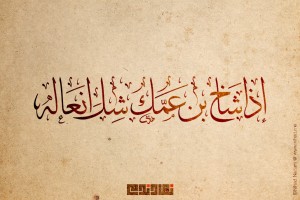 إذا شاخ بن عمّك شِل انعاله